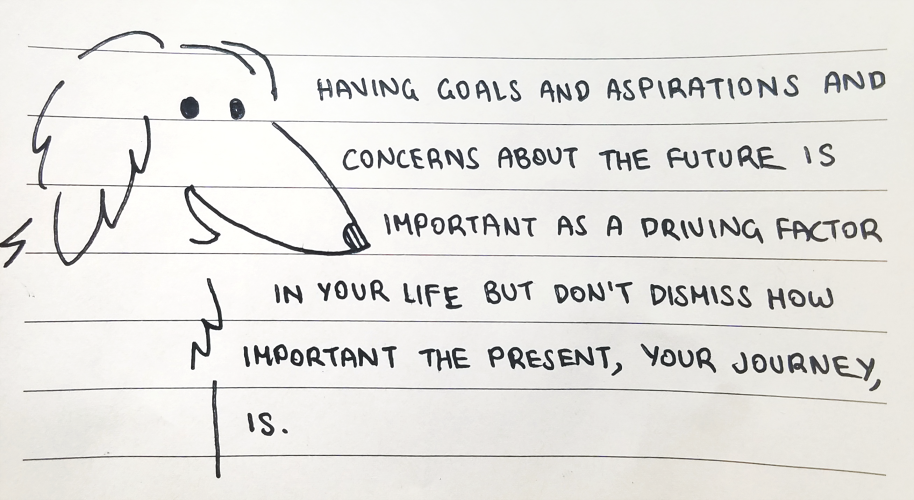 HAVING GOALS AND ASPIRATIONS AND
CONCERNS ABOUT THE FUTURE IS
IMPORTANT AS A DRIVING FACTOR
IN YOUR LIFE BUT DON'T DISMISS HOW
IMPORTANT THE PRESENT, YOUR JOURNEY,
IS.